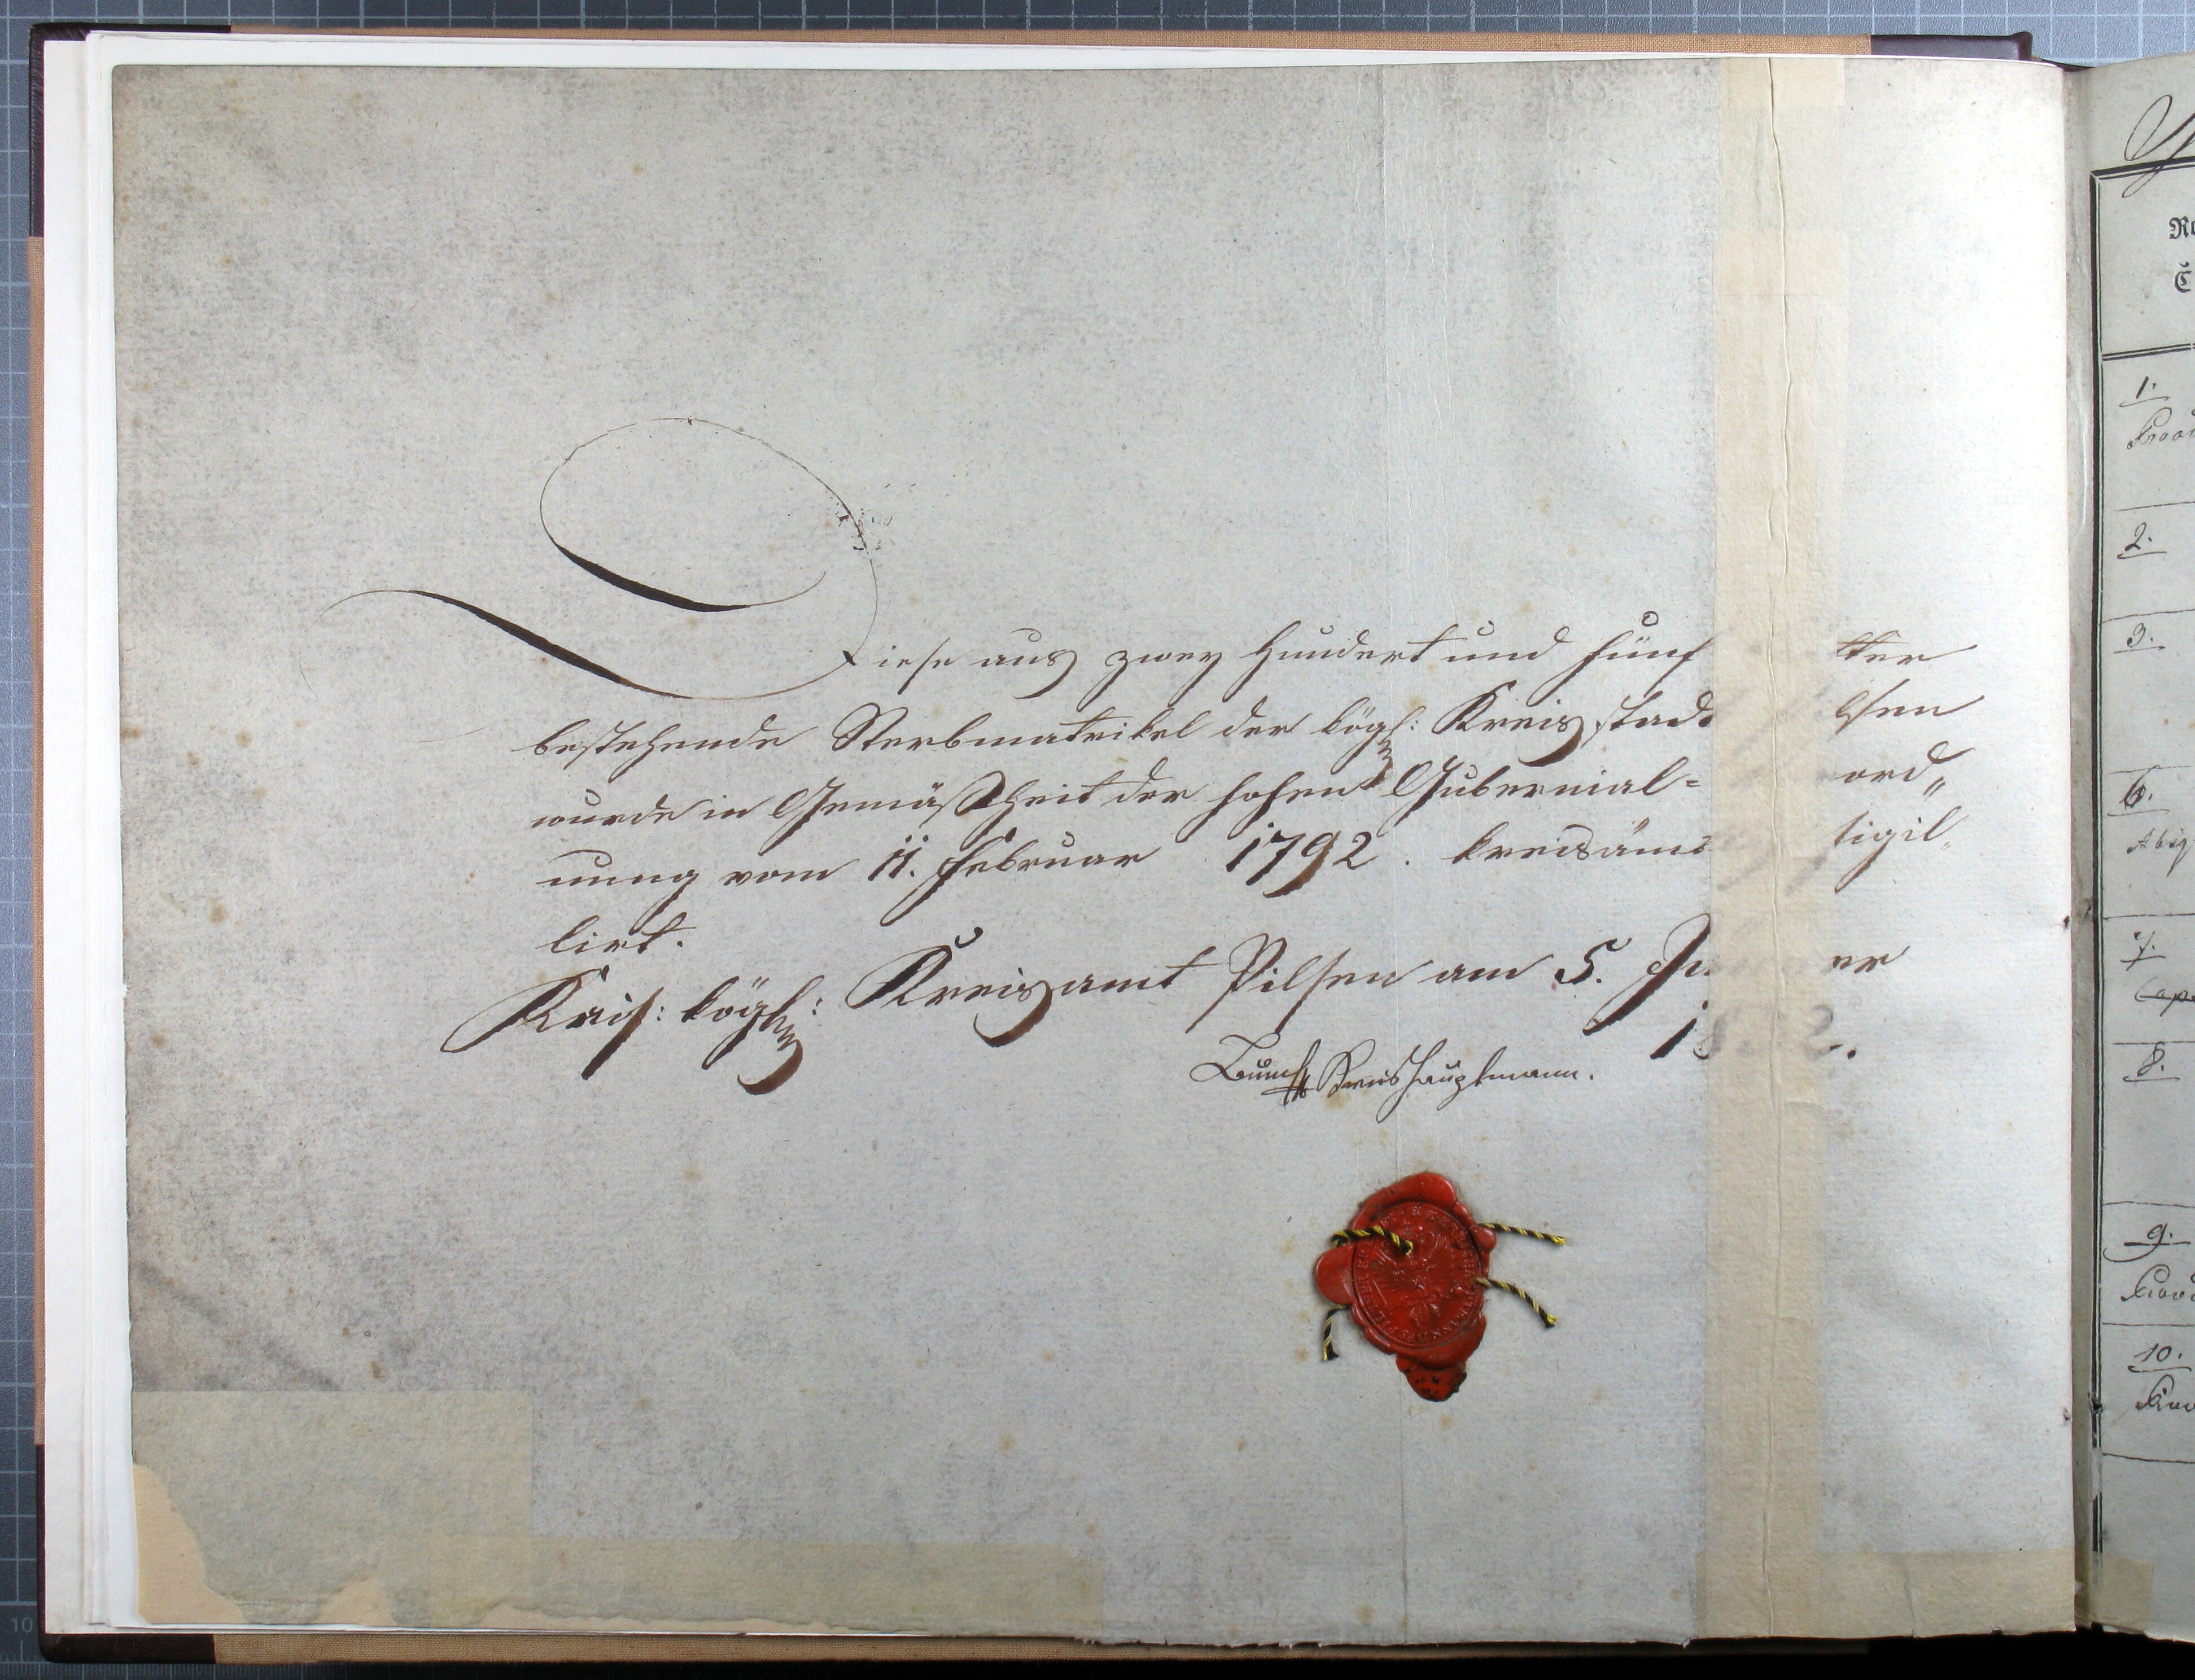 Diese aus zwey Hundert und fünf tter
bestehende Sterbmatrikel der kögl: Kreisstadt lsen
wurde in Gemäßheit der hohen Gubernial= ord„
nung vom 11. Februar 1792. kreisämt tigil„
lirt.
Kais: kögl: Kreisamt Pilsen am 5. er
Kreishauptmann.
1.
2.
3.
6.
7.
8.
9.
10.
10